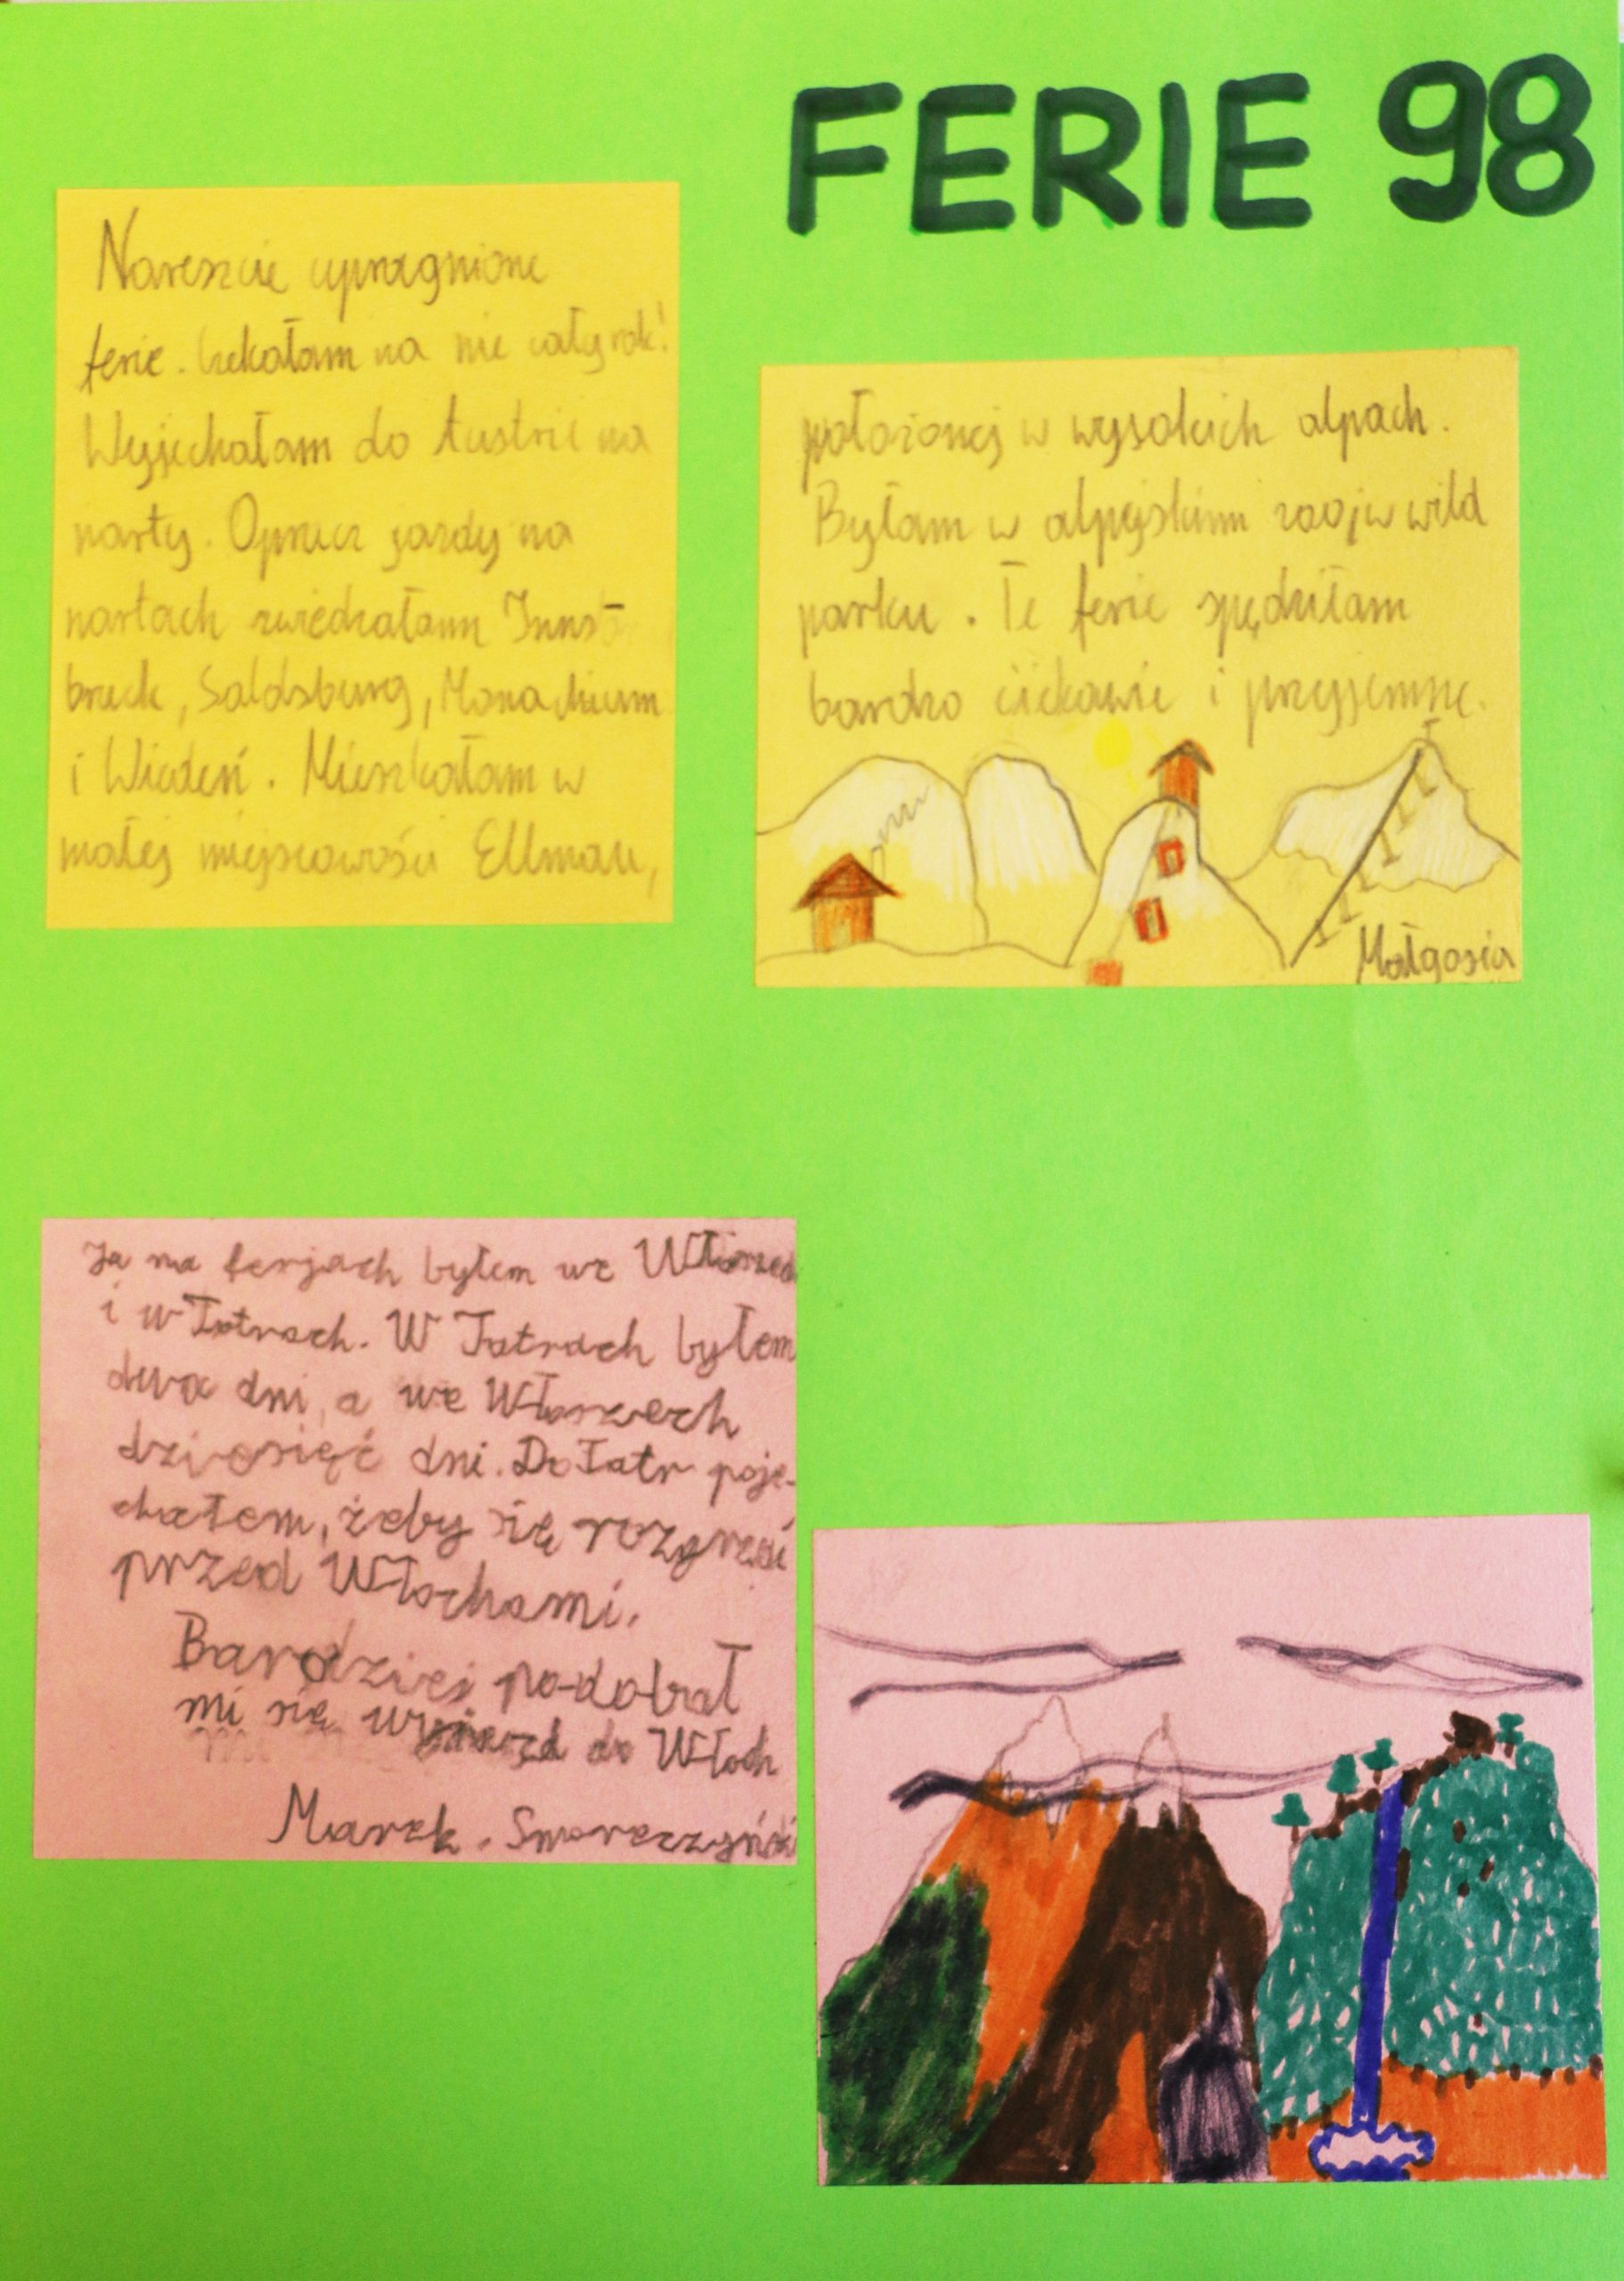 FERIE 98
Nareszcie upragnione
ferie. Czekałam na nie cały rok!
Wyjechałam do Austrii na
narty. Oprucz jazdy na
nartach zwiedzałam Inns-
bruck, Saldsburg, Monachium
i Wiedeń. Mieszkałam w
małej miejscowości Ellmau,
położonej w wysokich alpach.
Byłam w alpejskim zoo, w wild
parku. Te ferie spędziłam
bardzo ciekawie i przyjemnie.
Małgosia
Ja na ferjach byłem we Włoszech
i w Tatrach. W Tatrach byłem
dwa dni, a we Włoszech
dziesięć dni. Do Tatr poje-
chałem, żeby się rozgrzać
przed Włochami.
Bardziej podobał
mi się wyjazd do Włoch
Marek